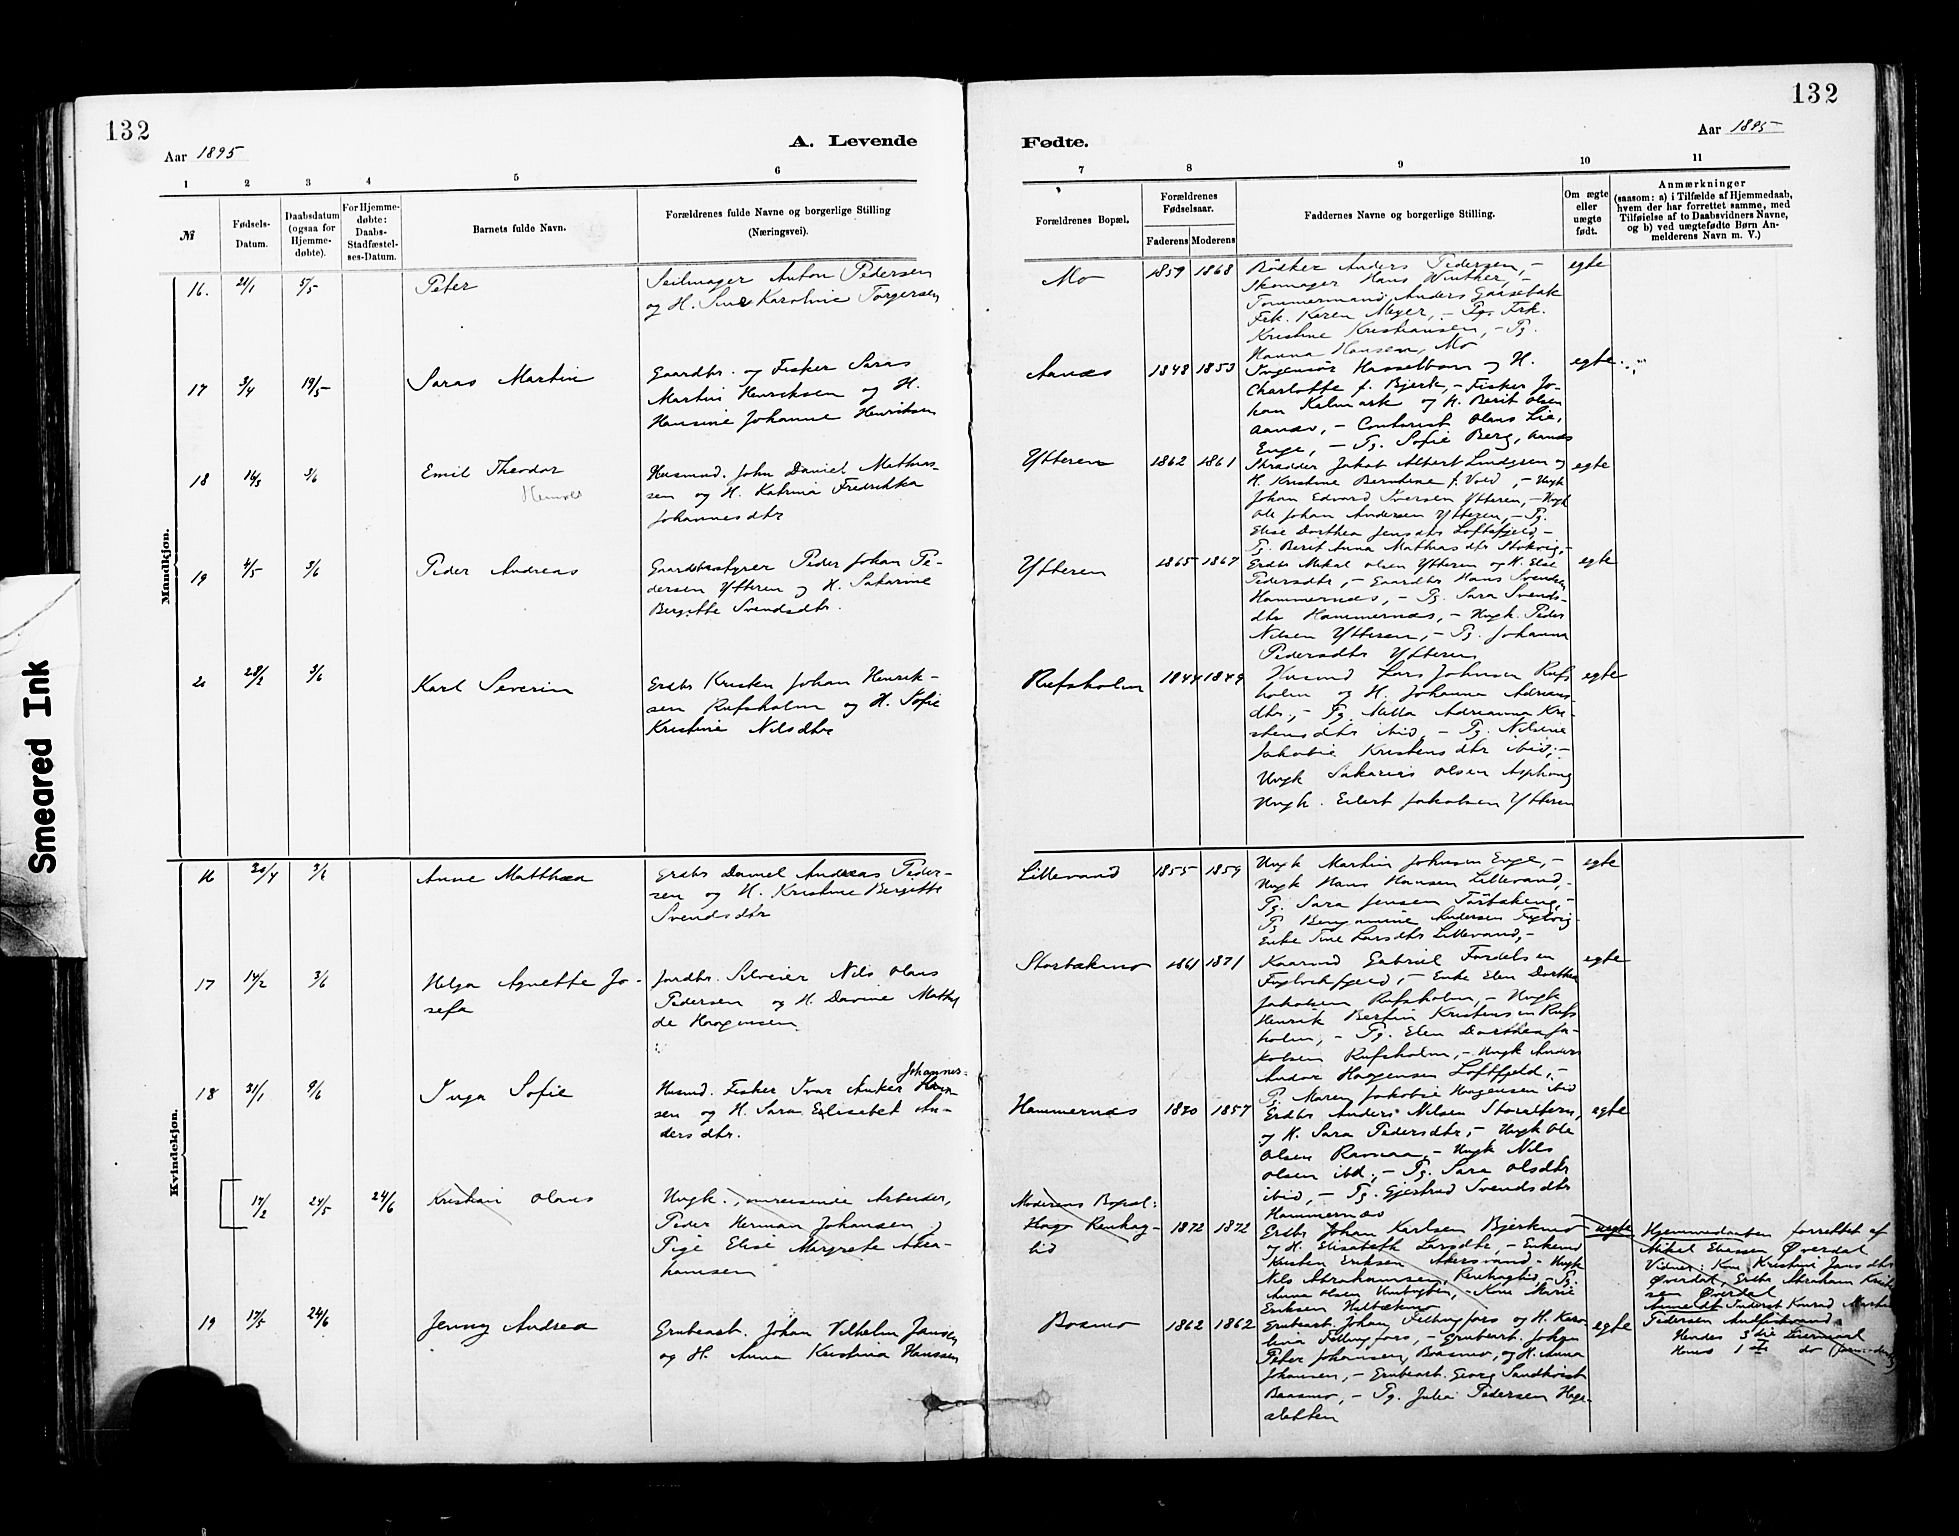 132
132
Aar 1895
A. Levende
Fødte.
Aar 1895
1 2 3 4 5 6 7 8 9 10 11
№
Fødsels-
Datum.
Daabsdatum
(ogsaa for
Hjemme-
døbte).
For Hjemme-
døbte:
Daabs-
Stadfæstel-
ses-Datum.
Barnets fulde Navn.
Forældrenes fulde Navne og borgerlige Stilling
(Næringsvei).
Forældrenes Bopæl.
Forældrenes
Fødselsaar.
Faderens Moderens
Faddernes Navne og borgerlige Stilling.
Om ægte
eller
uægte
født.
Anmærkninger
(saasom: a) i Tilfælde af Hjemmedaab,
hvem der har forrettet samme, med
Tilføielse af to Daabsvidners Navne,
og b) ved uægtefødte Børn An-
melderens Navn m. V.)
Mandkjøn.
16. 21/1 5/5
Peter
Seilmager Anton Pedersen
og H. Karoline Torgersen
Mo
1859 1868
Bödker Anders Pedersen, -
Skomager Hans Winther, -
Tømmermand Anders Gaasebak
Frk. Karen Meyer, - Frk.
Kristine Kristiansen, - Pg.
Hanna Hansen, Mo
egte
17 3/4 19/5
Saras Martin
Gaardbr. og Fisker Saras
Martin Henriksen og H.
Hansine Johanne Henriksen
Aanæs
1848 1853
Ingeniör Hasselbom og H.
Charlotte f. Bjerk, - Fisker Jo-
han Kalmark og H. Berit Olsen
Aanæs, - Contorist Olaus Lie,
Enge, - Pg. Sofie Berg, Aanæs
egte
18 14/3 3/6
Emil Theodor
Husmd. John Daniel Mathias-
sen og H. Katrina Fredrikka
Johannesdtr
Ytteren
1862 1861
Skrædder Jakob Albert Lindgren og
H. Kristine Berntine f. Vold, - Ungk
Johan Edvard Iversen Ytteren, - Ungk
Ole Johan Andersen Ytteren, - Pg.
Elise Dorthea Jensdtr Loftfjeld, -
Pg. Berit Anna Mathiasdtr Stokvig, -
egte
19 4/5 3/6
Peder Andreas
Gaardbestyrer Peder Johan Pe-
dersen Ytteren og H. Sakarine
Bergitte Svendsdtr.
Ytteren
1865 1867
Erdbr Mikal Olsen Ytteren og H. Else
Pedersdtr, - Gaardbr Hans Svendsen
Hammernæs, - Pg. Sara Svends-
dtr Hammernæs, - Ungk. Peder
Nilsen Ytteren, - Pg. Johanna
Pedersdtr Ytteren
egte
20 28/2 3/6
Karl Severin
Erdbr Kristen Johan Henrik-
sen Rufsholm og H. Sofie
Kristine Nilsdtr
Rufsholm
1844 1849
Husmd Lars Johnsen Rufs
holm og H. Johanna Adrians
dtr, - Pg. Milla Adrianna Kri-
stensdtr ibid, - Pg. Nilsine
Jakobie Kristensdtr ibid, -
Ungk Sakarias Olsen Asphaug
Ungk. Edert Jakobsen Ytteren
egte
Kvindekjøn.
16 30/4 3/6
Anne Matthea
Erdbr Daniel Andreas Peder-
sen og H. Kristine Bergitte
Svendsdtr
Lillevand
1855 1859
Ungk Martin Johnsen Enge, -
Ungk Hans Hansen Lillevand, -
Pg. Sara Jensen
Pg Benjamine Andersen
Enke Tine Larsdtr Lillevand, -
egte
17 14/2 3/6
Helga Agnette Jo-
sefa
Jordbr. Nils Olaus
Pedersen og H. Davine Mathil
de Haagensen
Storbækmo
1861 1871
Kaarmd Gabriel
Enke Elen Dorthea
Jakobsen Rufsholm, - Ungk
Henrik Bertin Kristensen Rufs
holm, - Pg. Elen Dorthea Ja-
kobsen Rufsholm, - Ungk Anders
Andor Haagensen Loftfjeld, -
Pg. Maren Jakobie Haagensen ibid
egte
18 31/1 9/6
Inga Sofie
Johannes-
Husmd. Fisker Ivar Anker
sen og H. Sara Elisabet An-
dersdtr.
Hammernæs
1870 1857
Erdbr Anders Nilsen
og H. Sara Pedersdtr, - Ungk Ole
Olsen Ravnaa, - Ungk Nils
Olsen ibd, - Pg. Sara Olsdtr
ibid, - Pg. Gjertrud Svendsdtr
Hammernæs
egte
17/2 24/5 24/6
Kristian Olaus
Ungk., omreisende Arbeider,
Peder Herman Johansen og
Pige Elise Margrete Abra-
hamsen
Moderens Bopæl:
1872 1872
Erdbr Johan Karlsen Bjerkmo
og H. Elisabeth Larsdtr, - Enkemd
Kristen Eriksen Akersvand - Ungk
Nils Abrahamsen, - Pg.
Anna Olsen - Kone Marie
Eriksen
uegte
Hjemmedaaben forrettet af
Mikel Eliassen Øverdal
Vidner: Kone Kristine Jansdtr
Øverdal, Erdbr Abraham
sen Øverdal
Anmeldt Inderst Konrad Martin
Pedersen
Hendes 3die Leiermaal
Hans 1ste do
19 17/5 24/6
Jenny Andrea
Grubearb. Johan Vilhelm Jansen
og H. Anna Kristina Hanssen
Bosmo
1862 1862
Grubearb. Johan Fellingfors og H. Karo-
lina Fellingfors, - Grubearb. Johan
Peter Johansen, Bosmo, og H. Anna
Johansen, - Grubearb. Georg Sandkvist
Baasmo, - Pg. Julia Pedersen Hage-
sletten
egte
Smeared Ink